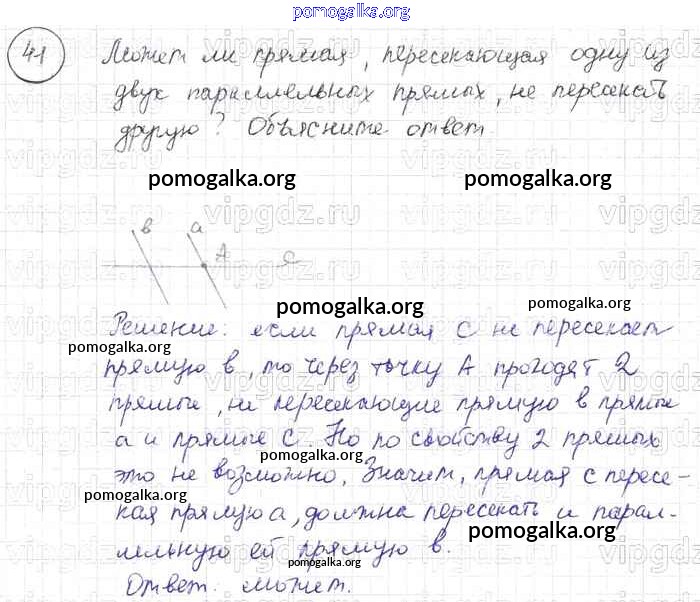 pomogalka.org
41 Может ли прямая, пересекающая одну из
двух параллельных прямых, не пересекать
другую? Объясните ответ.
pomogalka.org pomogalka.org
vipgdz.ru vipgdz.ru vipgdz.ru
в а А С
pomogalka.org
Решение: если прямая С не пересекает
pomogalka.org
прямую в, то через точку А проходят 2
прямые, не пересекающие прямую в прямые
а и прямые С. Но по свойству 2 прямых
pomogalka.org
это не возможно. Значит, прямая с пересе-
pomogalka.org
кая прямую а, должна пересекать и парал-
pomogalka.org
лельную ей прямую в.
pomogalka.org
Ответ: может.
pomogalka.org